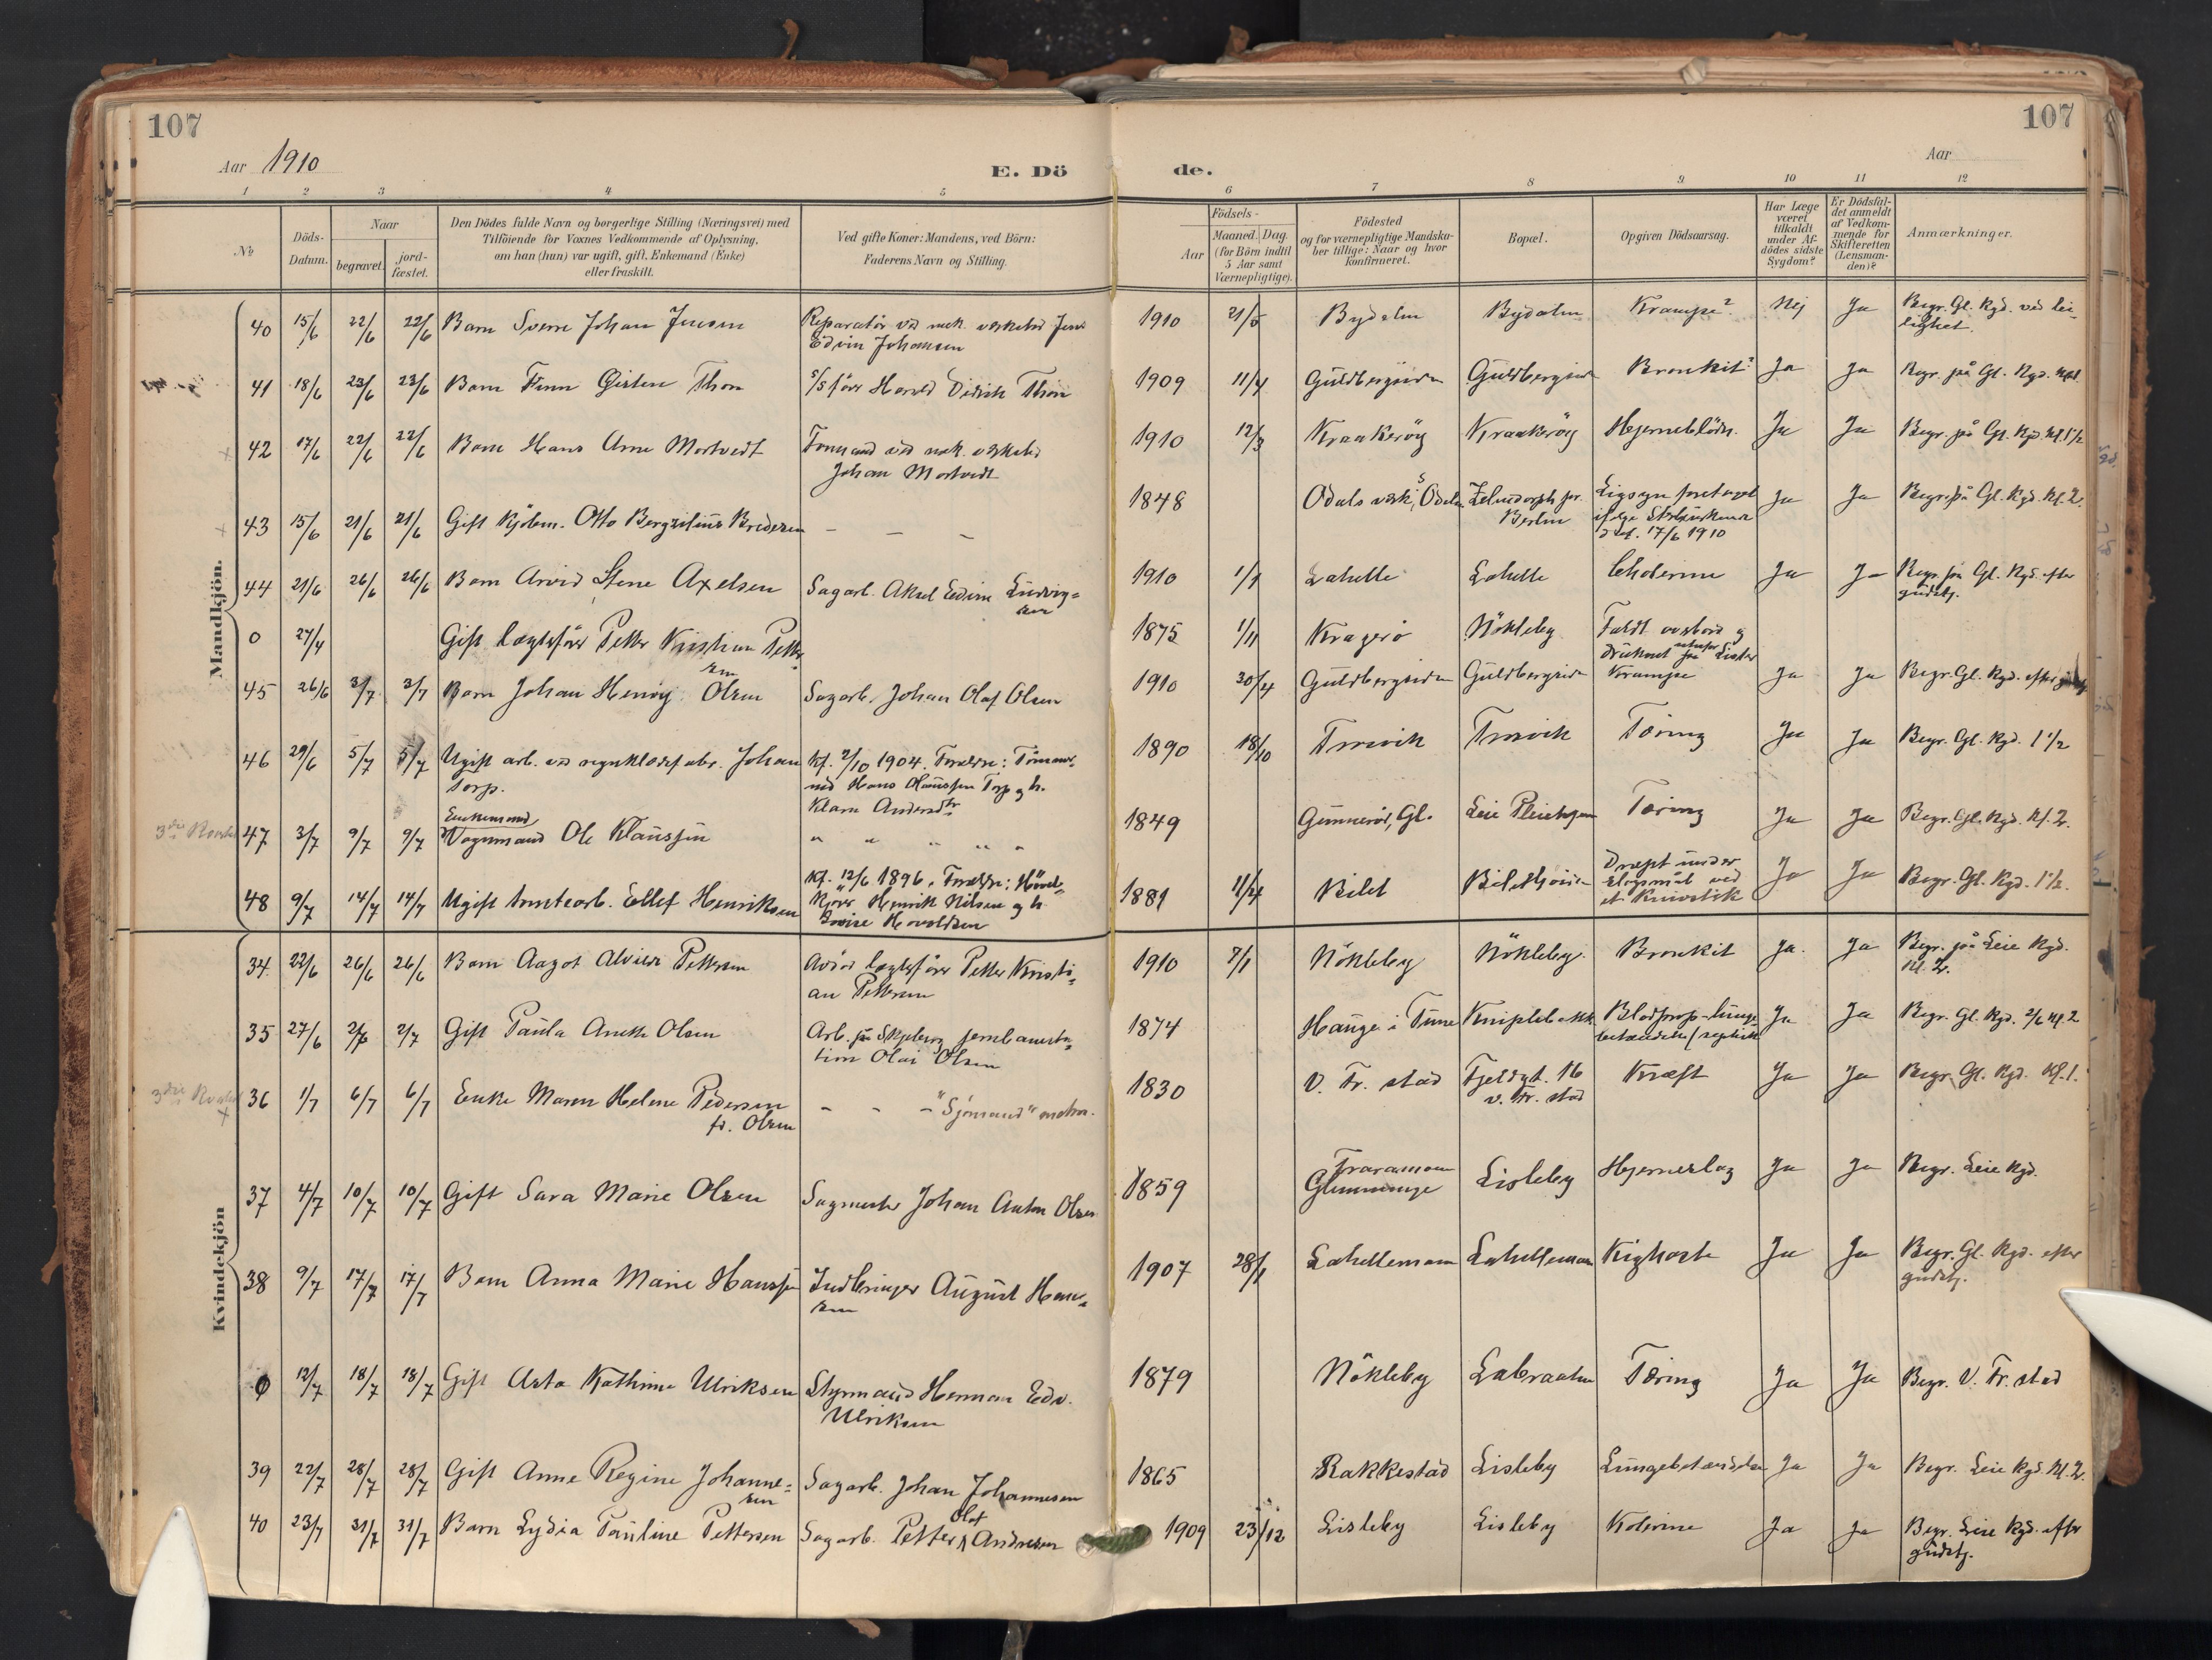 107
107
Aar 1910
E. Dö
de.
Aar
1 2 3 4 5 6 7 8 9 10 11 12
No
Döds-
Datum.
Naar
begravet.
jord-
fæstet.
Den Dödes fulde Navn og borgerlige Stilling (Næringsvei) med
Tilföiende for Voxnes Vedkommende af Oplysning,
om han (hun) var ugift, gift, Enkemand (Enke)
eller fraskilt.
Ved gifte Koner: Mandens, ved Börn:
Faderens Navn og Stilling.
Födsels-
Aar
Maaned. Dag.
(for Börn indtil
5 Aar samt
Værnepligtige).
Födested
og for værnepligtige Mandska-
ber tillige: Naar og hvor
konfirmeret.
Bopæl.
Opgiven Dödsaarsag.
Har Læge
været
tilkaldt
under Af-
dödes sidste
Sygdom?
Er Dödsfal-
det anmeldt
af Vedkom-
mende for
Skifteretten
(Lensman-
den)?
Anmærkninger.
Mandkjön.
40 15/6 22/6 22/6 Barn Sverre Johan Jensen
Reparatör ved mek. verksted Jens
Edvin Johansen
1910 21/5 Bydalen Bydalen Krampe? Nej Ja Begr. Gl. Kgd. ved lei-
lighet.
41 18/6 23/6 23/6 Barn Finn Thon
S/S förer Harald Didrik Thon
1909 11/4 Guldbergsiden Guldbergsiden Bronkit? Ja Ja Begr. på Gl. Kgd.
42 17/6 22/6 22/6 Barn Hans Arne Mortvedt
Formand ved mek. verksted
Johan Mortvedt
1910 12/3 Kraakeröy Kraakeröy Hjerneblödn. Ja Ja Begr. på Gl. Kgd. kl. 1 1/2
43 15/6 21/6 21/6 Gift Kjöbm. Otto Bredesen
- - -
1848 Odals verk, S. Odalen Zehlendorf for
Berlin
Ligsyn foretaget
ifölge
17/6 1910
Ja Ja Begr. på Gl. Kgd. kl. 2.
44 21/6 26/6 26/6 Barn Arvid Stene Axelsen
Sagarb. Aksel Edvin Ludvig-
sen
1910 1/1 Lahelle Lahelle Choderine Ja Ja Begr. på Gl. Kgd. efter
gudstj.
0 27/4 Gift lægtsförer Petter Kristian Petter-
sen
1875 1/11 Kragerö Nökleby Faldt overbord og
druknet utenfor Lister
45 26/6 3/7 3/7 Barn Johan Henry Olsen
Sagarb. Johan Olaf Olsen
1910 30/4 Guldbergsiden Guldbergsiden Krampe Ja Ja Begr. Gl. Kgd. efter
46 29/6 5/7 5/7 Ugift arb. ved regnklædefabr. Johan
Torp.
Kf. 2/10 1904. Forældre: Tömmer-
md Hans Olaussen Torp og h.
Klara Andersdtr
1890 18/10 Trosvik Trosvik Tæring Ja Ja Begr. Gl. Kgd. 1 1/2
3die Kvartal 47 3/7 9/7 9/7 Enkemand
Vognmand Ole Klaussen
" " " " "
1849 Gunneröd, Gl. Leie Pleiehjem Tæring Ja Ja Begr. Gl. Kgd. kl. 2.
48 9/7 14/7 14/7 Ugift tomtearb. Ellef Henriksen
Kf. 12/6 1896. Forældre: Hövel-
kjörer Henrik Nilsen og h.
Lovise Haroldsen
1881 11/24 Bilet Dræpt under
slagsmål ved
et knivstik
Ja Ja Begr. Gl. Kgd. 1 1/2.
Kvindekjön
34 22/6 26/6 26/6 Barn Aagot Alvilde Pettersen
Avdöd lægtsförer Petter Kristi-
an Pettersen
1910 7/1 Nökleby Nökleby. Bronkit Ja. Ja Begr. på Leie Kgd.
kl. 2.
35 27/6 2/7 Gift Paula Anette Olsen
Arb. på Skjeberg jernbanesta-
tion Olai Olsen
1874 Hauge i Tune Kniplebakk. Blodprop-lunge-
betændelse (septisk
Ja Ja Begr. Gl. Kgd. 2/6 kl. 2
3die Kvartal 36 1/7 6/7 6/7 Enke Maren Helene Pedersen
fd. Olsen
- - - "Sjömand"
1830 V. Fr. stad Fjeldgt. 16
V. Fr. stad
Kræft Ja Ja Begr. Gl. Kgd. Kl. 1.
37 4/7 10/7 10/7 Gift Sara Marie Olsen
Sagmester Johan Anton Olsen
1859 Traramoen
Glemminge
Lisleby Hjerneslag Ja Ja Begr. Leie Kgd.
38 9/7 17/7 17/7 Barn Anna Marie Hanssen
Indbringer August Han-
sen
1907 28/1 Lahellemoen Lahellemoen Kighoste Ja Ja Begr. Gl. Kgd. efter
gudstj.
0 12/7 18/7 18/7 Gift Asta Kathrine Ulriksen
Styrmand Herman Edv.
Ulriksen
1879 Nökleby Labraaten Tæring Ja Ja Begr. V. Fr. stad
39 22/7 28/7 28/7 Gift Anne Regine Johanne-
sen
Sagarb. Johan Johannesen
1865 Rakkestad Lisleby Lungebetændelse Ja Ja Begr. Leie Kgd. kl. 2.
40 23/7 31/7 31/7 Barn Lydia Pauline Pettersen
Sagarb. Petter Olaf Andresen
1909 23/12 Lisleby Lisleby Kolerine Ja Ja Begr. Leie Kgd. efter
gudstj.